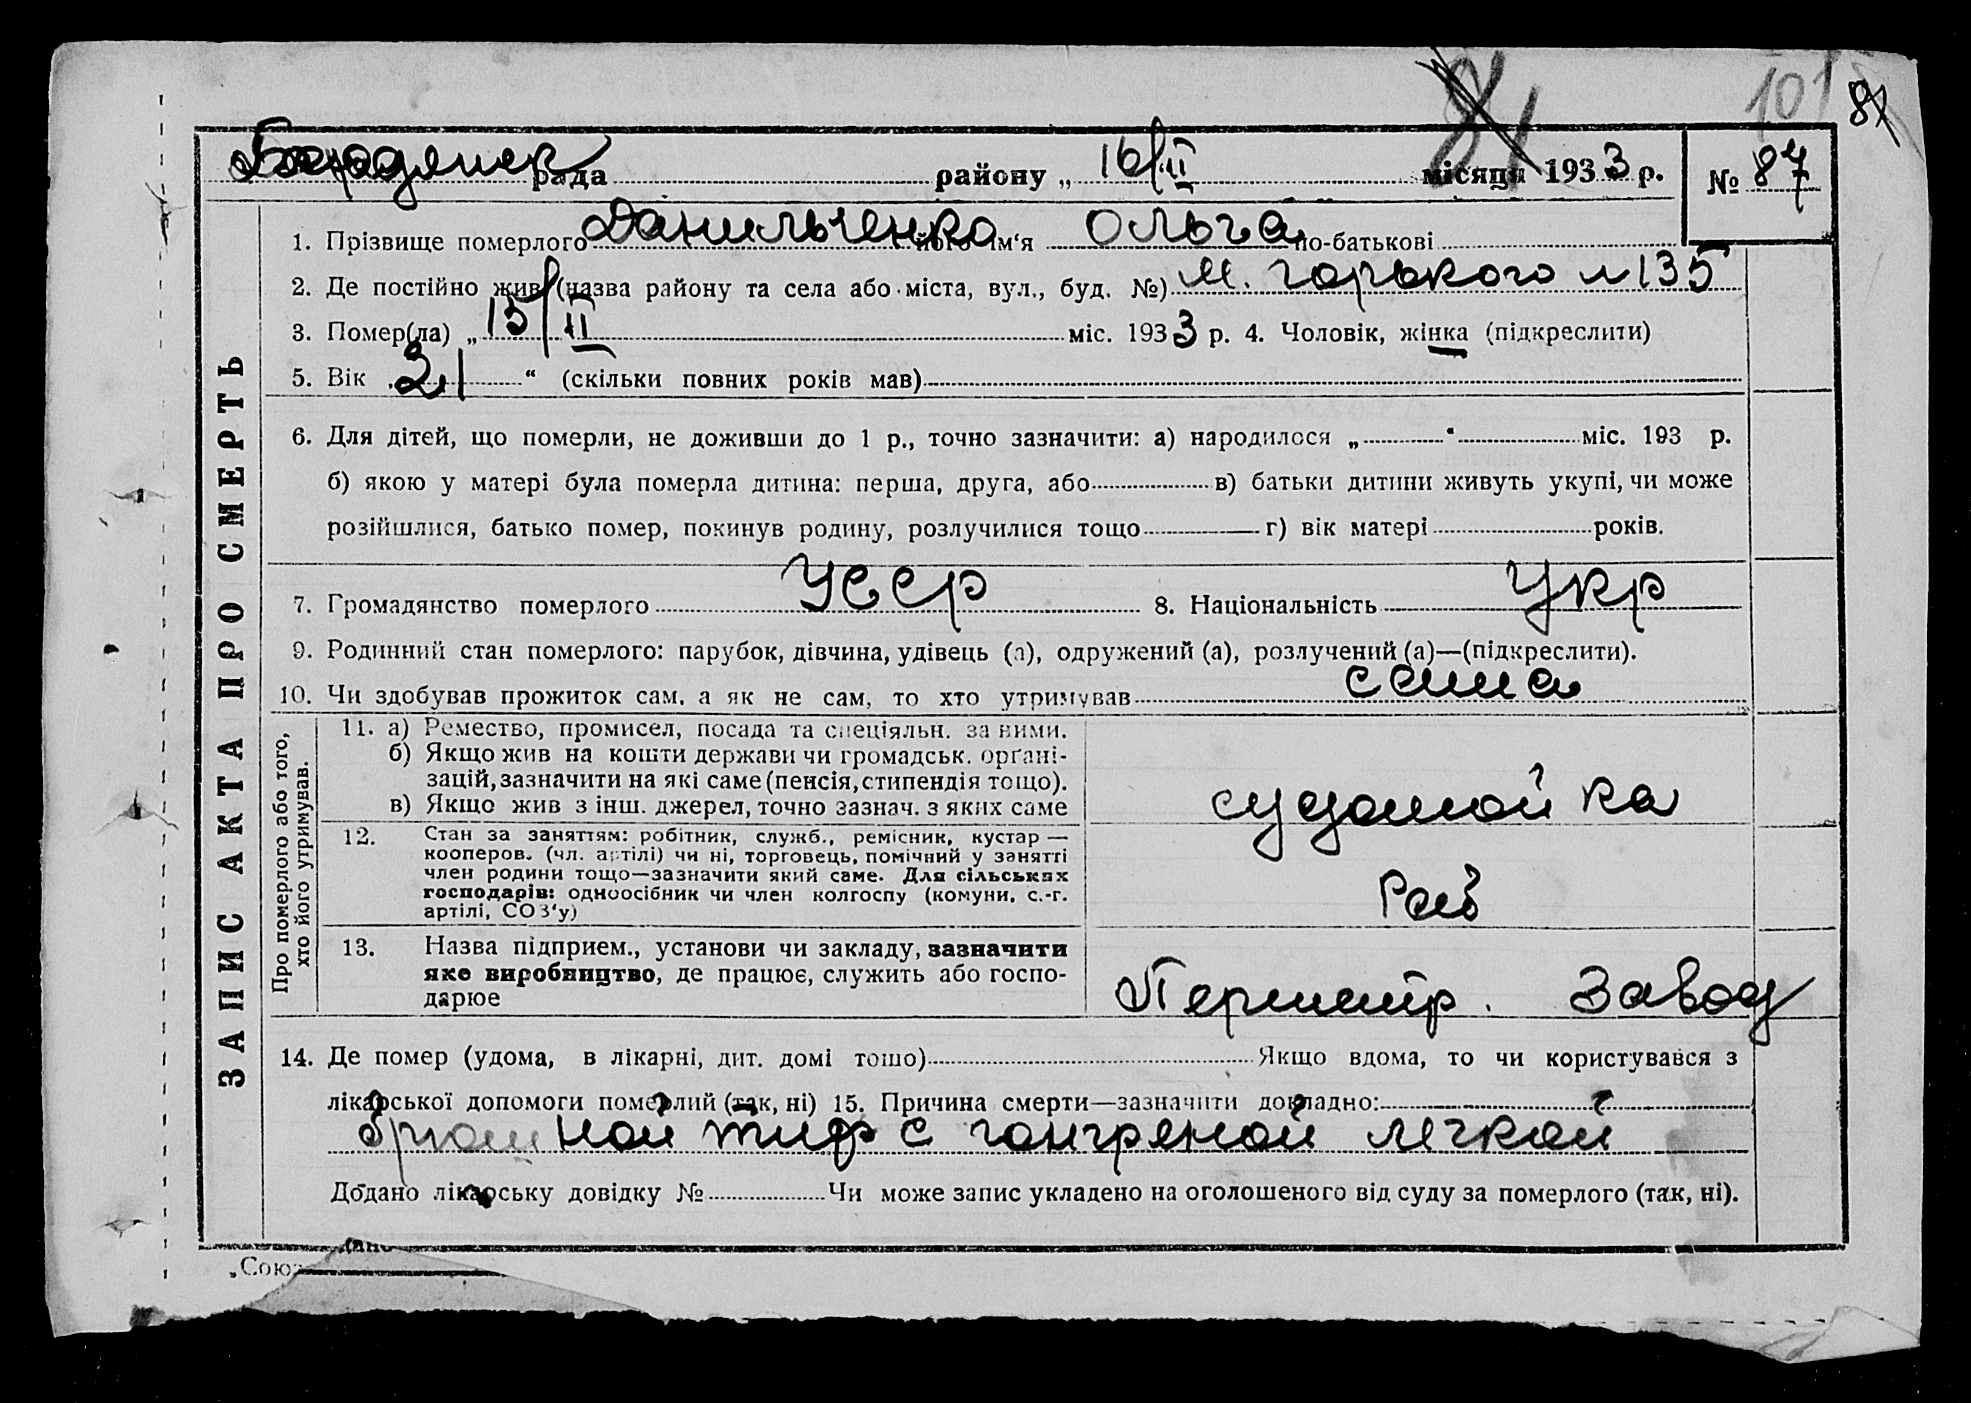 81 101 87
Бердянск рада району „ 16/II місяця 1933 р. № 87
ЗАПИС АКТА ПРО СМЕРТЬ
1. Прізвище померлого Данильченко його ім'я Ольга по-батькові
2. Де постійно жив (назва району та села або міста, вул., буд. №) М. Горького № 135
3. Помер(ла) „ 15/II міс. 1933 р. 4. Чоловік, жінка (підкреслити)
5. Вік „ 21 “ (скільки повних років мав)
6. Для дітей, що померли, не доживши до 1 р., точно зазначити: а) народилося „ “ міс. 193 р.
б) якою у матері була померла дитина: перша, друга, або в) батьки дитини живуть укупі, чи може
розійшлися, батько помер, покинув родину, розлучилися тощо г) вік матері років.
7. Громадянство померлого УССР 8. Національність Укр
9. Родинний стан померлого: парубок, дівчина, удівець (а), одружений (а), розлучений (а)—(підкреслити).
10. Чи здобував прожиток сам, а як не сам, то хто утримував сама
Про померлого або того,
хто його утримував.
11. а) Ремество, промисел, посада та спеціяльн. за ними.
б) Якщо жив на кошти держави чи громадськ. орґані-
зацій, зазначити на які саме (пенсія, стипендія тощо).
в) Якщо жив з інш. джерел, точно зазнач. з яких саме
12. Стан за заняттям: робітник, служб., ремісник, кустар —
кооперов. (чл. артілі) чи ні, торговець, помічний у занятті
член родини тощо—зазначити який саме. Для сільських
господарів: одноосібник чи член колгоспу (комуни, с.-г.
артілі, СОЗ'у)
Раб
13. Назва підприєм., установи чи закладу, зазначити
яке виробництво, де працює, служить або госпо-
дарює
Завод
14. Де помер (удома, в лікарні, дит. домі тощо) Якщо вдома, то чи користувався з
лікарської допомоги померлий (так, ні) 15. Причина смерти—зазначити докладно:
брюшной тиф с гангреной легкой
Додано лікарську довідку № Чи може запис укладено на оголошеного від суду за померлого (так, ні).
„Союз